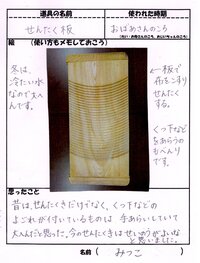 道具の名前
使われた時期
せんたく板
おばあさんのころ
絵 (使い方もメモしておこう)
冬は、
冷たい水
なので大へ
んです。
←板で
布をこすり
せんたくする。
くつ下など
をあらうの
もべんり
です。
思ったこと
昔は、せんたくきだけでなく、くつ下などの
よごれが付いているものは 手あらいしていて
大へんだと思った。今のせんたくきはせいのうがよいな
と思いました。
名前 ( みっこ )